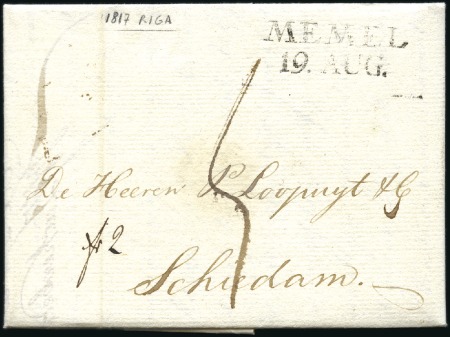 1817 RIGA
MEMEL
19. AUG.
De Heeren P. Loopuyt & C
2
Schiedam.